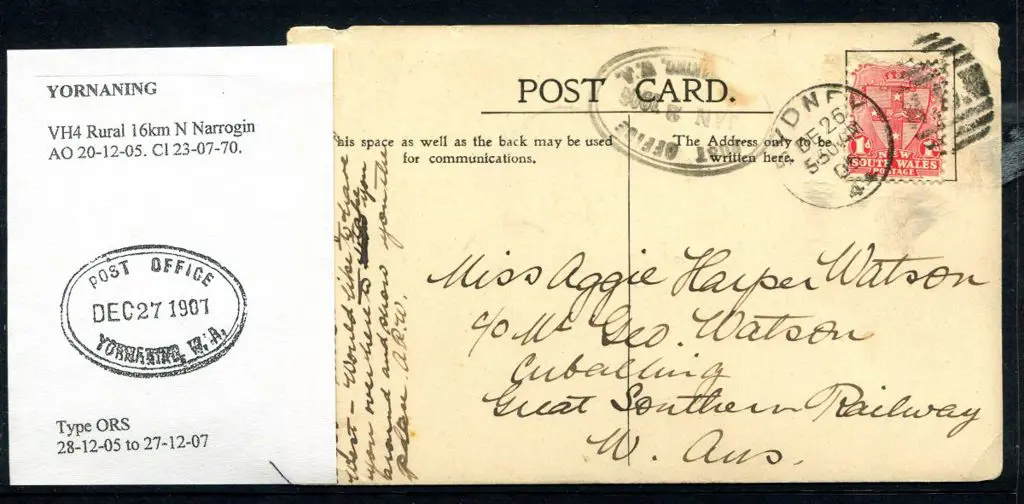 YORNANING
VH4 Rural 16km N Narrogin
AO 20-12-05. Cl 23-07-70.
POST OFFICE
DEC 27 1907
YORNANING, W.A.
Type ORS
28-12-05 to 27-12-07
POST CARD.
his space as well as the back may be used
for communications.
The Address only to be
written here.
POST OFFICE
JAN 2
W.A.
SYDNEY
DE 26
5-30
4
1d
NEW
SOUTH WALES
POSTAGE
West - Would like to have
you over here to take you
around and show you the
place. A.R.W.
Miss Aggie Harper Watson
c/o Mr Geo. Watson
Cuballing
Great Southern Railway
W. Aus.